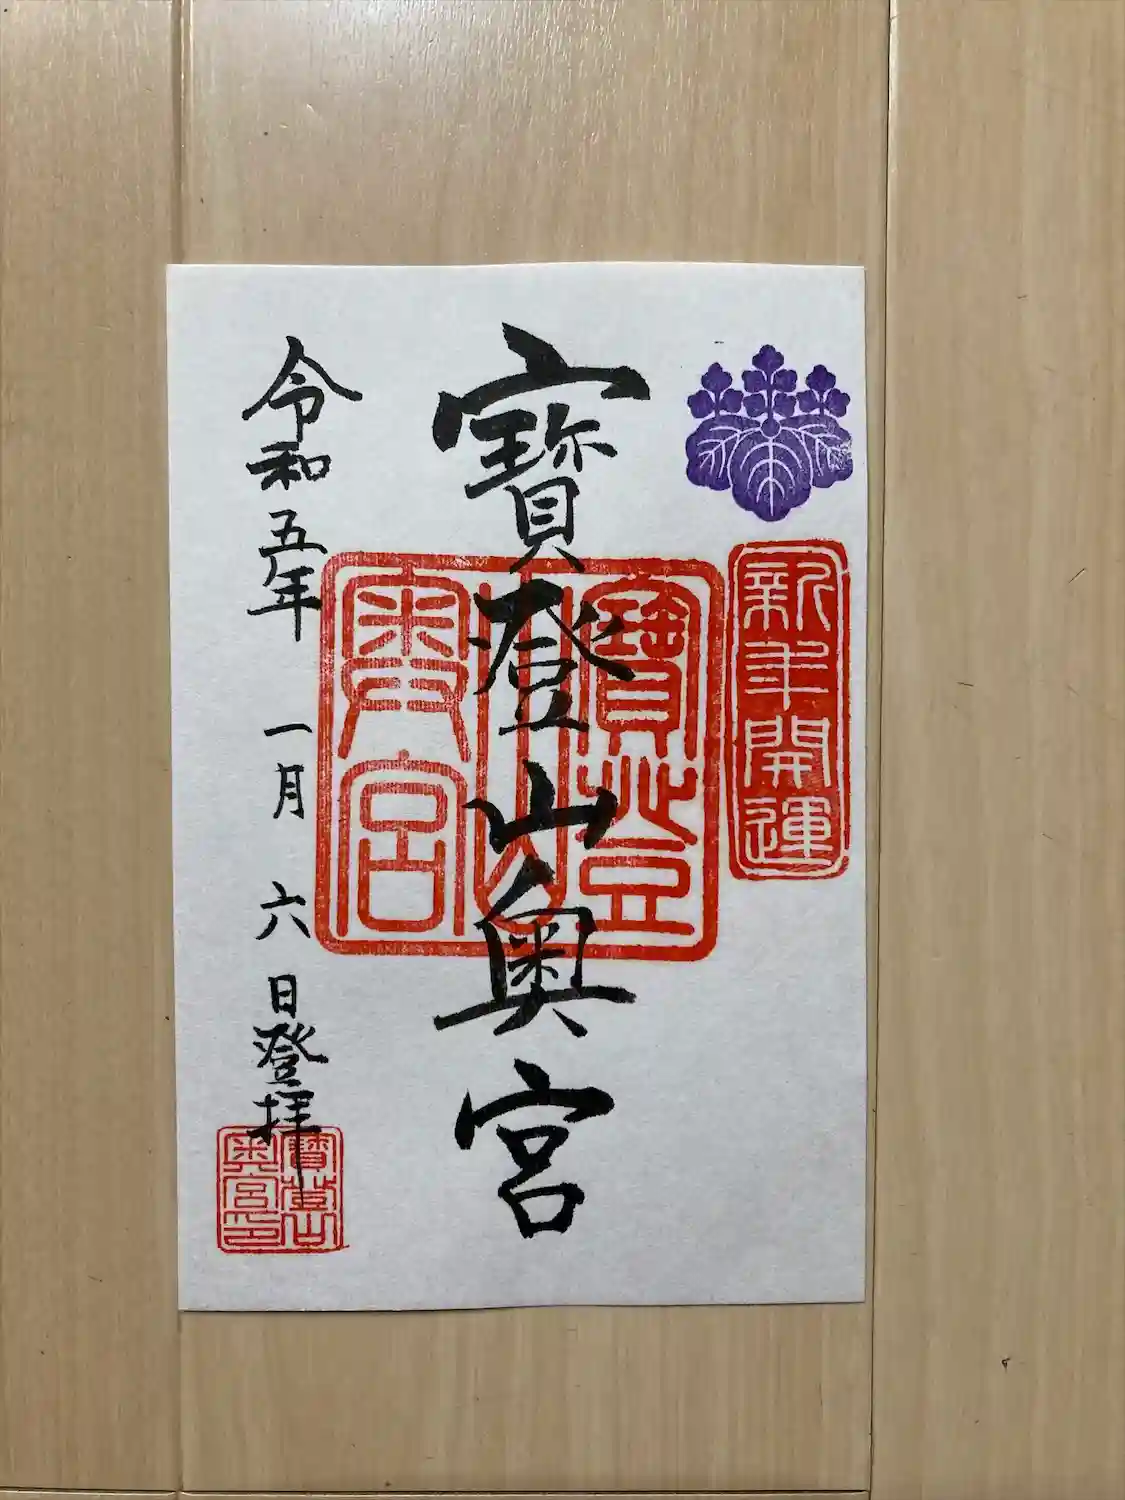 新年開運
寳登山奥宮
寳登山奥宮
令和五年一月六日登拝
寳登山奥宮印